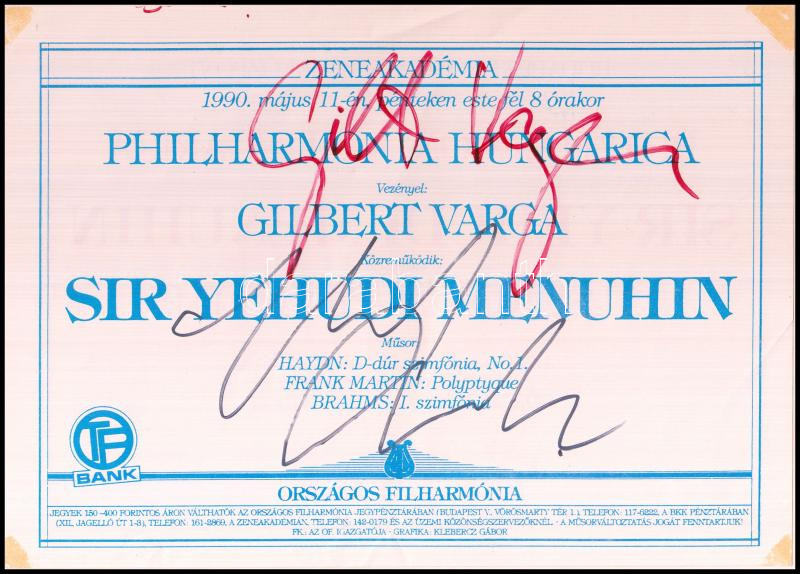 ZENEAKADÉMIA
1990. május 11-én, pénteken este fél 8 órakor
PHILHARMONIA HUNGARICA
Vezényel:
GILBERT VARGA
Közreműködik:
SIR YEHUDI MENUHIN
Műsor:
HAYDN: D-dúr szimfónia, No.1.
FRANK MARTIN: Polyptyque
BRAHMS: I. szimfónia
TFB
BANK
ORSZÁGOS FILHARMÓNIA
JEGYEK 150-400 FORINTOS ÁRON VÁLTHATÓK AZ ORSZÁGOS FILHARMÓNIA JEGYPÉNZTÁRÁBAN (BUDAPEST V., VÖRÖSMARTY TÉR 1.), TELEFON: 117-6222, A BKK PÉNZTÁRÁBAN
(XII. JAGELLÓ ÚT 1-3), TELEFON: 161-2869, A ZENEAKADÉMIÁN, TELEFON: 142-0179 ÉS AZ ÜZEMI KÖZÖNSÉGSZERVEZŐKNÉL · A MŰSORVÁLTOZTATÁS JOGÁT FENNTARTJUK!
FK.: AZ OF. IGAZGATÓJA · GRAFIKA: KLEBERCZ GÁBOR